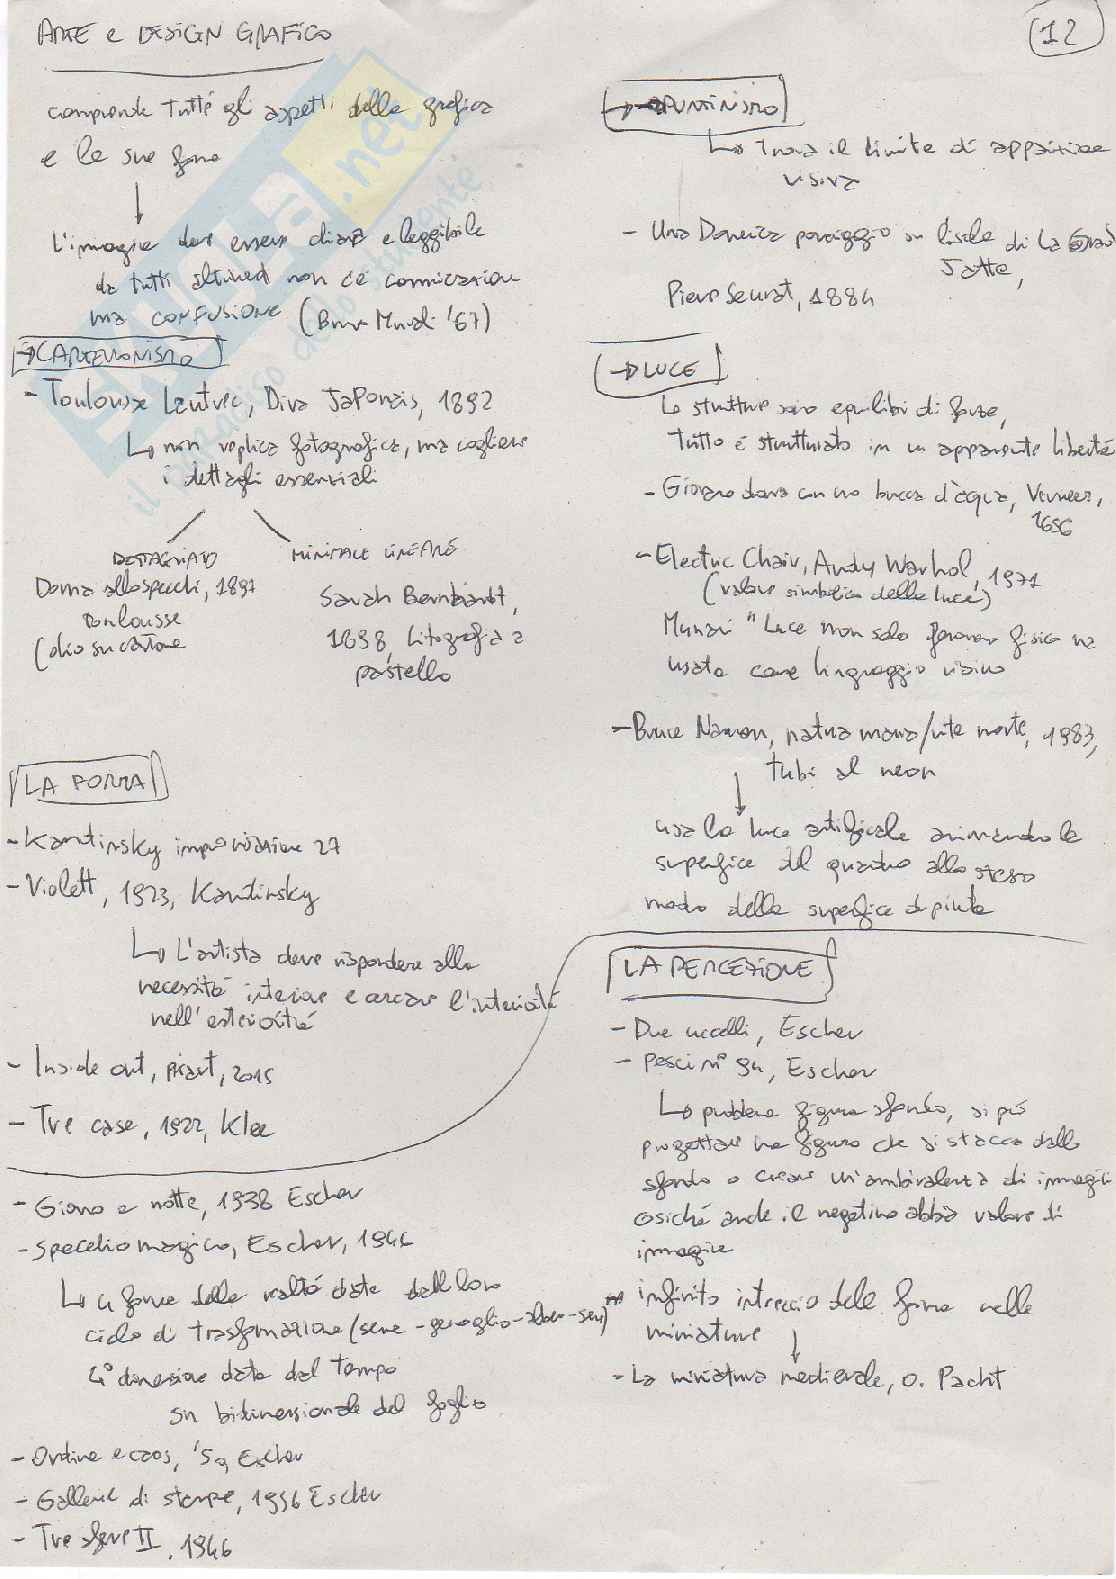 ARTE e DESIGN GRAFICO
12
comprende tutti gli aspetti della grafica
e le sue forme
↓
L'immagine deve essere chiara e leggibile
da tutti altrimenti non c'è comunicazione
ma CONFUSIONE (Bruno Munari '67)
→ CARTELLONISMO
- Toulouse Lautrec, Diva Japonais, 1892
↳ non replica fotografica, ma cogliere
i dettagli essenziali
DETTAGLIATO
Donna allo specchi, 1897
Toulousse
(olio su cartone
MINIMALE LINEARE
Sarah Bernhardt,
1898, Litografia a
pastello
LA FORMA
- Kantinsky improvvisazione 27
- Violett, 1923, Kantinsky
↳ L'artista deve rispondere alla
necessità interiore e cercare l'interiorità
nell'esteriorità
- Inside out, 2015
- Tre case, 1922, Klee
- Giorno e notte, 1938 Escher
- specchio magico, Escher, 1946
↳ 4 forme della realtà date dall loro
ciclo di trasformazione (seme - germoglio - albero - seme)
4° dimensione data dal Tempo
su bidimensionale del foglio
- Ordine e caos, '50, Escher
- Gallerie di stampe, 1956 Escher
- Tre sfere II, 1946
→ PUNTINISMO
↳ Trova il limite di apparizione
visiva
- Una Domenica pomeriggio su l'isola di La Grand
Jatte,
Piere Seurat, 1884
→ LUCE
Le strutture sono equilibri di forze,
Tutto è strutturato in un apparente libertà
- Giovane donna con una brocca d'acqua, Vermeer,
1656
- Electric Chair, Andy Warhol, 1971
(valore simbolico della luce)
Munari "Luce non solo fenomeno fisico ma
usata come linguaggio visivo
- Bruce Nauman, natura morta/vite morte, 1983,
tubi al neon
↓
usa la luce artificiale animando la
superfice del quadro allo stesso
modo della superfice dipinta
LA PERCEZIONE
- Due uccelli, Escher
- Pesci n° 94, Escher
↳ problema figura sfondo, si può
progettare una figura che si stacca dallo
sfondo o creare un'ambivalenza di immagini
cosiché anche il negativo abbia valore di
immagine
infinito intreccio delle forme nelle
miniature
↓
- La miniatura medievale, O. Pacht